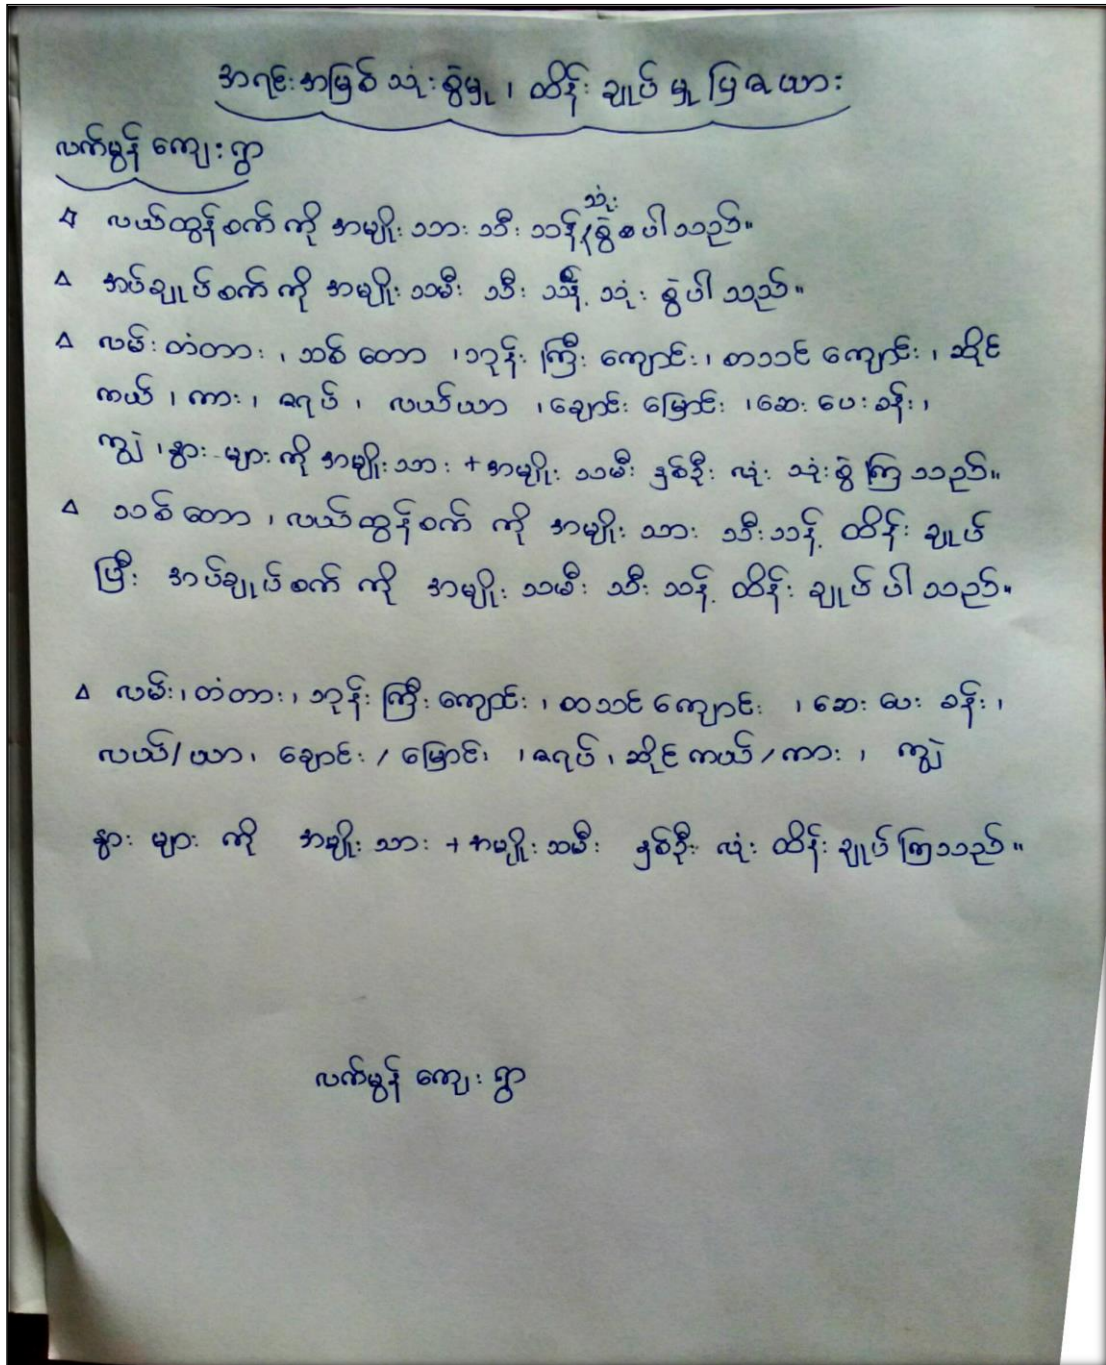 အရင်းအမြစ် သုံးစွဲမှု ၊ ထိန်းချုပ်မှု ပြဇယား
လက်မွန် ကျေးရွာ
လယ်ထွန်စက် ကို အမျိုးသား သီးသန့် သုံးစွဲစပါသည်။
အပ်ချုပ်စက် ကို အမျိုးသမီး သီးသန့် သုံးစွဲပါသည်။
လမ်းတံတား ၊ သစ်တော ၊ ဘုန်းကြီးကျောင်း ၊ စာသင်ကျောင်း ၊ ဆိုင်
ကယ် ၊ ကား ၊ ဇရပ် ၊ လယ်ယာ ၊ ချောင်းမြောင်း ၊ ဆေးပေးခန်း ၊
ကျွဲ ၊ နွားများ ကို အမျိုးသား + အမျိုးသမီး နှစ်ဦးလုံး သုံးစွဲကြသည်။
သစ်တော ၊ လယ်ထွန်စက် ကို အမျိုးသား သီးသန့် ထိန်းချုပ်
ပြီး အပ်ချုပ်စက် ကို အမျိုးသမီး သီးသန့် ထိန်းချုပ်ပါသည်။
လမ်း ၊ တံတား ၊ ဘုန်းကြီးကျောင်း ၊ စာသင်ကျောင်း ၊ ဆေးပေးခန်း ၊
လယ်/ယာ ၊ ချောင်း/မြောင်း ၊ ဇရပ် ၊ ဆိုင်ကယ်/ကား ၊ ကျွဲ
နွားများ ကို အမျိုးသား + အမျိုးသမီး နှစ်ဦးလုံး ထိန်းချုပ်ကြသည်။
လက်မွန် ကျေးရွာ